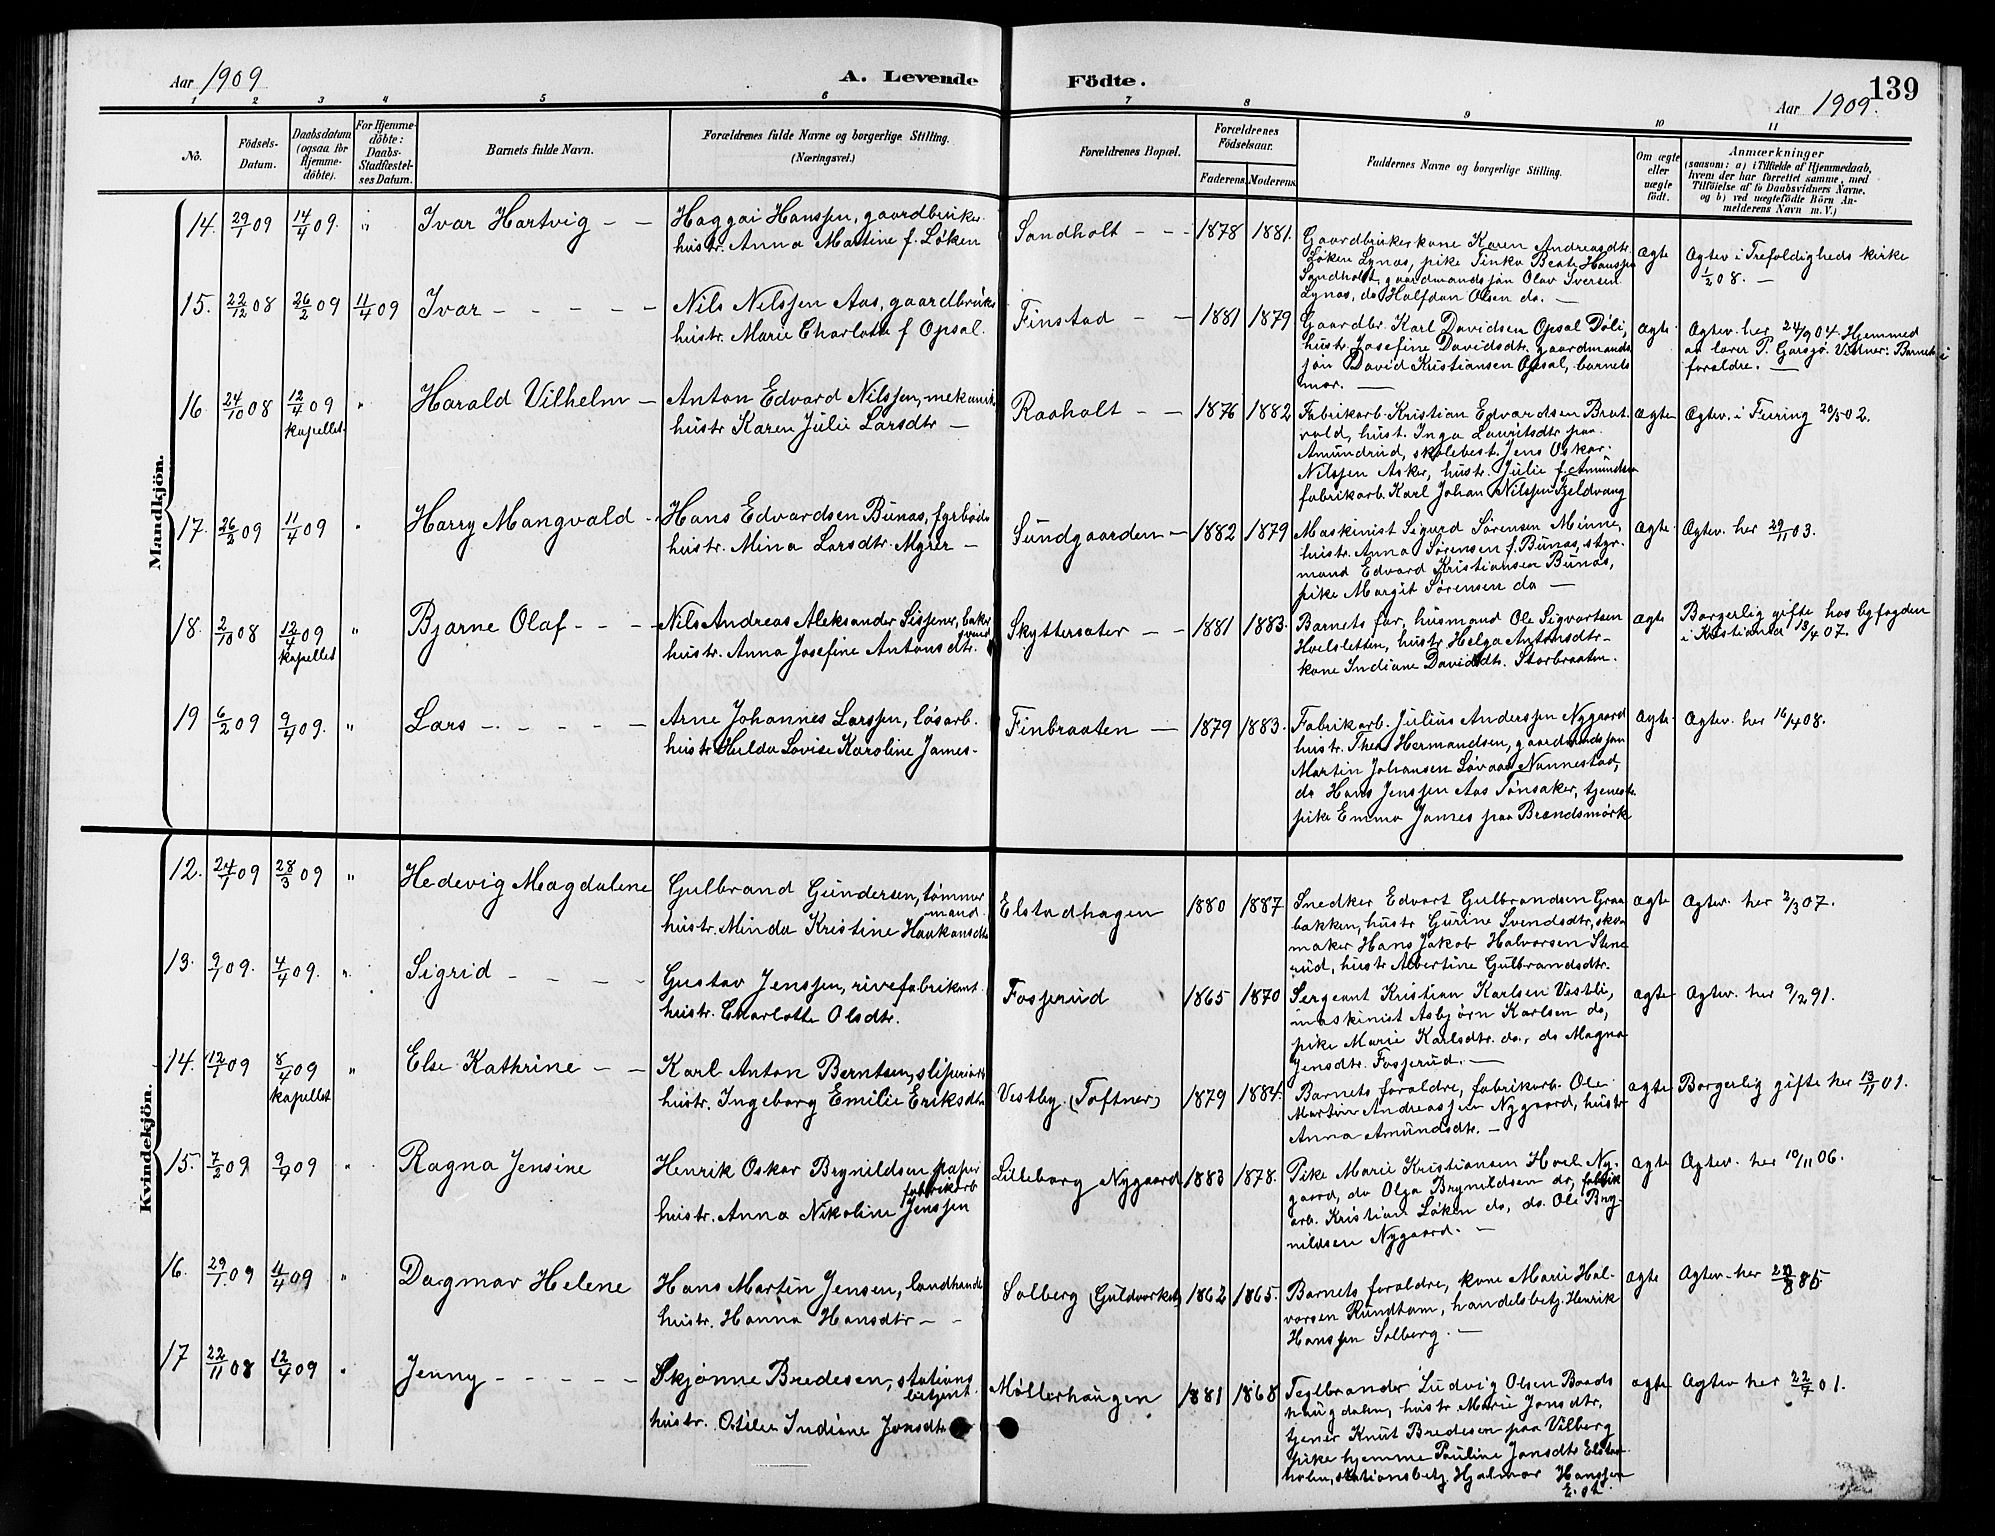 Aar 1909 A. Levende Födte. 139
Aar 1909.
1 2 3 4 5 6 7 8 9 10 11
No.
Födsels-
Datum.
Daabsdatum
(ogsaa for
Hjemme-
döbte).
For Hjemme-
döbte:
Daabs-
Stadfæstel-
ses Datum.
Barnets fulde Navn.
Forældrenes fulde Navne og borgerlige Stilling.
(Næringsvei.)
Forældrenes Bopæl.
Forældrenes
Födselsaar.
Faderens. Moderens.
Faddernes Navne og borgerlige Stilling.
Om ægte
eller
uægte
födt.
Anmærkninger
(saasom: a) i Tilfælde af Hjemmedaab,
hvem der har forrettet samme, med
Tilföielse af to Daabsvidners Navne,
og b) ved uægtefödte Börn An-
melderens Navn m. V.)
Mandkjön.
14. 29/1 09 14/4 09. " Ivar Hartvig – –
Haggai Hanssen, gaardbruker
hustr. Anna Martine f. Løken
Sandholt – – 1878 1881.
Gaardbrukerkone Karen Andreasdtr
Løken Lynas, pike Tinka Beate Hanssen
Sandholt, gaardmandssøn Olav Iversen
Lynas, do Halfdan Olsen do. –
ægte
Ægtev. i Trefoldigheds kirke
1/2 08. –
15. 22/12 08 26/2 09 11/4 09 Ivar – – – – –
Nils Nilssen Aas, gaardbruker
hustr. Marie Charlotte f Opsal.
Finstad – – 1881 1879
Gaardbr. Karl Davidsen Opsal Døli,
hustr. Josefine Davidsdtr. gaardmands
søn David Kristiansen Opsal, barnets
mor. –
ægte.
Ægtev. her 24/9 04. Hjemmed
av lærer P. Garsjø. Vidner: Barnets
forældre. –
16 24/10 08 12/4 09 " Harald Vilhelm –
kapellet
Anton Edvard Nilssen, mekanik
hustr Karen Julie Larsdtr –
Raaholt – – 1876 1882
Fabrikarb. Kristian Edvardsen Brat
vold, hust. Inga Lauritsdtr paa
Amundrud, skolebest. Jens Oskar
Nilssen Asker, hustr. Julie f. Amundsen
fabrikarb. Karl Johan Nilssen Fjeldvang
ægte
Ægtev. i Feiring 20/5 02.
17. 26/2 09 11/4 09 " Harry Mangvald –
Hans Edvardsen Bunæs, fyrbøder
hustr. Mina Larsdtr. Myrer –
Sundgaarden – 1882 1879
Maskinist Sigurd Sørensen Minne,
hustr. Anna Sørensen f. Bunæs, styr-
mand Edvard Kristiansen Bunæs,
pike Margit Sørensen do –
ægte.
Ægtev. her 29/11 03.
18. 2/10 08 12/4 09 " Bjarne Olaf – – –
kapellet
Nils Andreas Aleksander Sissener, baker
svend
hustr. Anna Josefine Antonsdtr.
Skyttersæter – – 1881 1883.
Barnets far, husmand Ole Sigvartsen
Hoelsletten, hustr. Helga Antonsdtr –
kone Indiane Davidsdtr. Storbraaten.
ægte
Borgerlig gifte hos byfogden
i Kristiania 13/4 07.
19 6/2 09 9/4 09. " Lars – – – – –
Arne Johannes Larssen, løsarb.
hustr. Hulda Lovise Karoline James –
Finbraaten – 1879 1883.
Fabrikarb. Julius Anderssen Nygaard
hustr. Thea Hermandsen, gaardmandssøn
Martin Johansen Løvaas Nannestad,
do Hans Jenssen Aas Tønsaker, tjeneste
pike Emma James paa Brændsmørk
ægte.
Ægtev. her 16/4 08.
Kvindekjön.
12. 24/1 09 28/3 09 " Hedevig Magdalene
Gulbrand Gundersen, tømmer
mand.
hustr. Minda Kristine Haakonsdtr
Elstadhagen 1880 1887
Snedker Edvart Gulbrandsen Graa
bakken, hustr Gurine Svendsdtr, sko
maker Hans Jakob Halvorsen Stine
rud, hustr Albertine Gulbrandsdtr.
ægte
Ægtev. her 2/3 07.
13. 9/1 09. 4/4 09. " Sigrid – – – –
Gustav Jenssen, rivefabrikant
hustr. Charlotte Olsdtr.
Fosserud 1865 1870
Sergeant Kristian Karlsen Vestli,
maskinist Asbjørn Karlsen do,
pike Marie Karlsdtr. do., do Magna
Jensdtr. Fosserud. –
ægte
Ægtev. her 9/2 91.
14. 12/1 09 8/4 09 " Else Kathrine – –
kapellet
Karl Anton Berntsen, sliperiarb
hustr. Ingeborg Emilie Eriksdtr
Vestby. (Toftner) 1879 1884.
Barnets forældre, fabrikarb. Ole
Martin Andreassen Nygaard, hustr
Anna Amundsdtr. –
ægte
Borgerlig gifte her 13/11 01.
15. 7/2 09 9/4 09 " Ragna Jensine
Henrik Oskar Brynildsen, papir
fabrikarb
hustr. Anna Nikoline Jenssen
Lilleborg Nygaard 1883 1878.
Pike Marie Kristiansen Hoel Ny-
gaard, do Olga Brynildsen do, fabrik
arb. Kristian Løken do, do. Ole Bry-
nildsen Nygaard. –
ægte
Ægtev. her 10/11 06.
16. 29/1 09 11/4 09 " Dagmar Helene
Hans Martin Jensen, landhandl
hustr. Hanna Hansdtr – –
Solberg (Guldverket) 1862 1865.
Barnets forældre, kone Marie Hal-
vorsen Rundtom, handelsbetj. Henrik
Hanssen Solberg. –
ægte
Ægtev. her 27/8 85.
17 22/11 08 12/4 09 " Jenny – – – – –
Skjønne Bredesen, stations
betjent
hustr. Otilie Indiane Jonsdtr
Møllerhaugen 1881 1868
Teglbrænder Ludvig Olsen Baads
haugdalen, hustr Marie Jonsdtr,
tjener Knut Bredesen paa Vilberg
pike hjemme Pauline Jonsdtr Elstad
holm, stationsbetj. Hjalmar Hanssen
E. st.
ægte
Ægtev her 22/7 01.